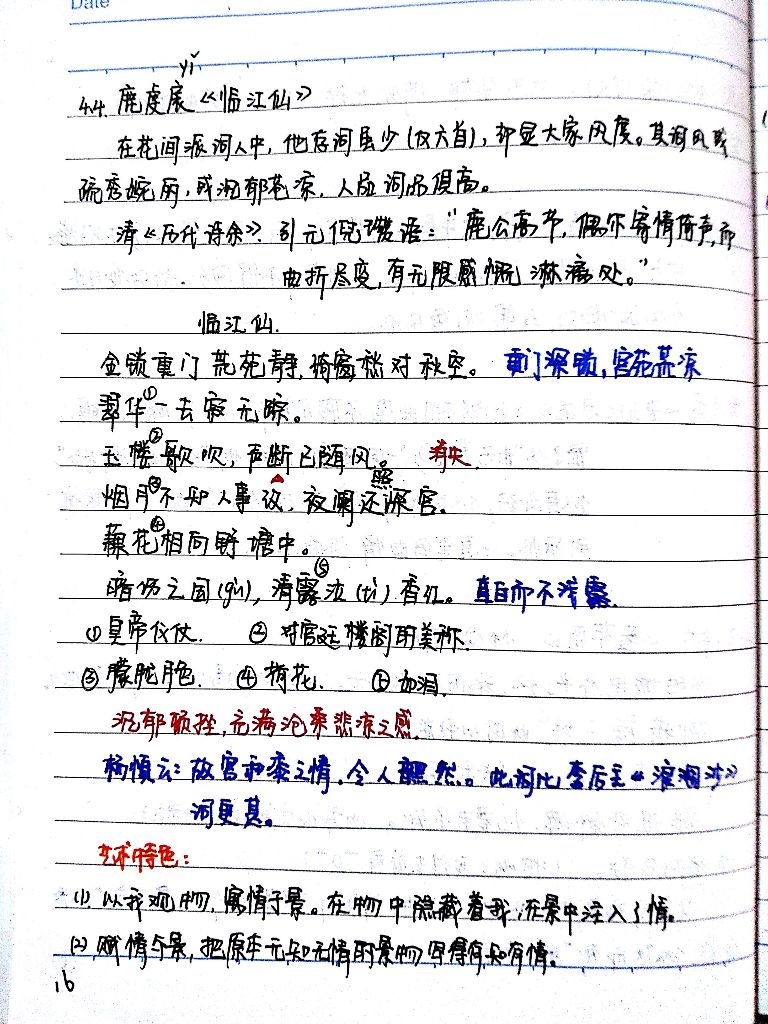 Date
yǐ
44. 鹿虔扆《临江仙》
在花间派词人中，他存词虽少（仅六首），却显大家风度。其词风或
疏秀婉丽，或沉郁苍凉，人品词品俱高。
清《历代诗余》引元倪瓒语："鹿公高节，偶尔寄情倚声，而
曲折尽变，有无限感慨淋漓处。"
临江仙.
金锁重门荒苑静，绮窗愁对秋空。 重门深锁，宫苑荒凉
翠华①一去寂无踪。
玉楼②歌吹，声断已随风。 消失
烟月③不知人事改，夜阑还照深宫.
藕花④相向野塘中。
暗伤亡国(guó)，清露⑤泣(tì)香红。 直白而不浅露.
①皇帝仪仗. ②对宫廷楼阁的美称.
③朦胧月色. ④荷花. ⑤如泪.
沉郁顿挫，充满沧桑悲凉之感.
杨慎云：故宫禾黍之情，令人黯然。此词比李后主《浪淘沙》
词更甚。
艺术特色：
(1). 以我观物，寓情于景。在物中隐藏着我，在景中注入了情。
(2) 赋情与景，把原本无知无情的景物写得有知有情。
16